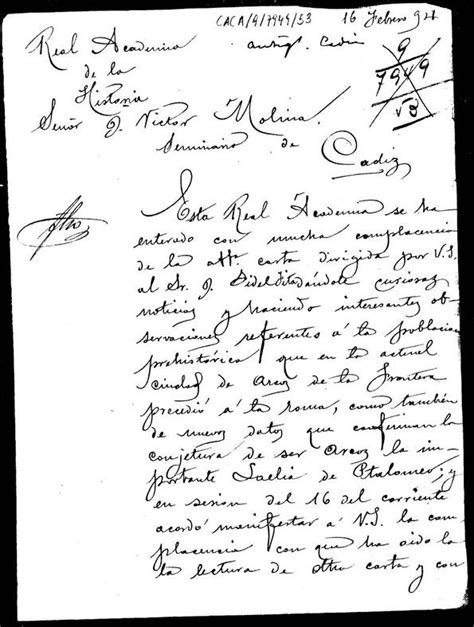 CACA/9/7949/53 16 Febrero 9
Real Academia
de la
Historia
antig. Cadiz
9
7949
53
Señor D. Victor Molina.
Seminario de
Cadiz
Esta Real Academia se ha
enterado con mucha complacencia
de la att. carta dirigida por V.S.
al Sr. D. Fidel Fita dándole curiosas
noticias y haciendo interesantes ob-
servaciones referentes á la poblacion
prehistórica que en la actual
ciudad de Arcos de la Frontera
precedió á la roma, como también
de nuevos datos que confirman la
conjetura de ser Arcos la im-
portante Laelia de Ptolomeo; y
en sesion del 16 del corriente
acordó manifestar á V.S. la com-
placencia con que ha oido la
la lectura de dha carta y con